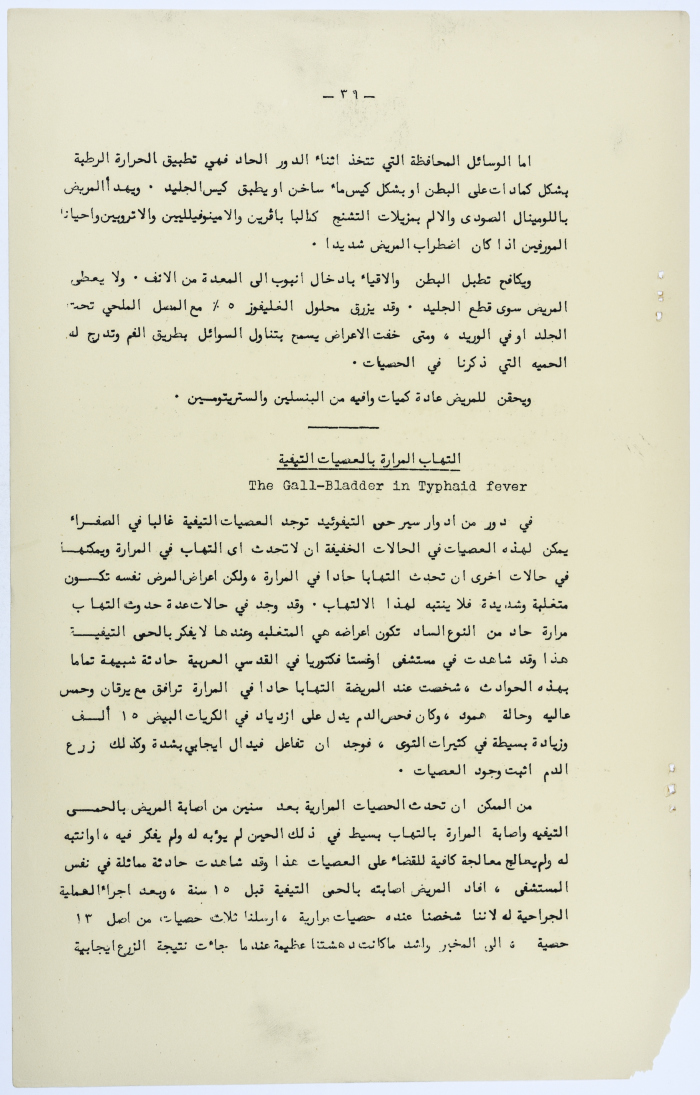 — ٣٩ —
اما الوسائل المحافظة التي تتخذ اثناء الدور الحاد فهي تطبيق الحرارة الرطبة
بشكل كمادات على البطن او بشكل كيس ماء ساخن او يطبق كيس الجليد ٠ ويهدأ المريض
باللومينال الصودى والالم بمزيلات التشنج كالبا بافرين والامينوفيللين والاتروبين واحيانا
المورفين اذا كان اضطراب المريض شديدا ٠
ويكافح تطبل البطن والاقياء بادخال انبوب الى المعدة من الانف ٠ ولا يعطى
المريض سوى قطع الجليد ٠ وقد يزرق محلول الغليفوز ٥ ٪ مع المصل الملحي تحت
الجلد او في الوريد ، ومتى خفت الاعراض يسمح بتناول السوائل بطريق الفم وتدرج له
الحميه التي ذكرنا في الحصيات ٠
ويحقن للمريض عادة كميات وافيه من البنسلين والستربتومسين ٠
التهاب المرارة بالعصيات التيفية
The Gall-Bladder in Typhaid fever
في دور من ادوار سير حمى التيفوئيد توجد العصيات التيفية غالبا في الصفراء
يمكن لهذه العصيات في الحالات الخفيفة ان لا تحدث اى التهاب في المرارة ويمكنها
في حالات اخرى ان تحدث التهابا حادا في المرارة ، ولكن اعراض المرض نفسه تكون
متغلبة وشديدة فلا ينتبه لهذا الالتهاب ٠ وقد وجد في حالات عدة حدوث التهاب
مرارة حاد من النوع الساد تكون اعراضه هي المتغلبه وعندها لا يفكر بالحمى التيفية
هذا وقد شاهدت في مستشفى اوغستا فكتوريا في القدسي العربية حادثة شبيهة تماما
بهذه الحوادث ، شخصت عند المريضة التهابا حادا في المرارة ترافق مع يرقان وحمى
عاليه وحالة همود ، وكان فحص الدم يدل على ازدياد في الكريات البيض ١٥ ألف
وزيادة بسيطة في كثيرات النوى ، فوجد ان تفاعل فيدال ايجابي بشدة وكذلك زرع
الدم اثبت وجود العصيات ٠
من الممكن ان تحدث الحصيات المرارية بعد سنين من اصابة المريض بالحمى
التيفيه واصابة المرارة بالتهاب بسيط في ذلك الحين لم يؤبه له ولم يفكر فيه ، او انتبه
له ولم يعالج معالجة كافية للقضاء على العصيات هذا وقد شاهدت حادثة مماثلة في نفس
المستشفى ، افاد المريض اصابته بالحمى التيفية قبل ١٥ سنة ، وبعد اجراء العملية
الجراحية له لاننا شخصنا عنده حصيات مرارية ، ارسلنا ثلاث حصيات من اصل ١٣
حصية ، الى المخبر واشد ما كانت دهشتنا عظيمة عندما جاءت نتيجة الزرع ايجابية